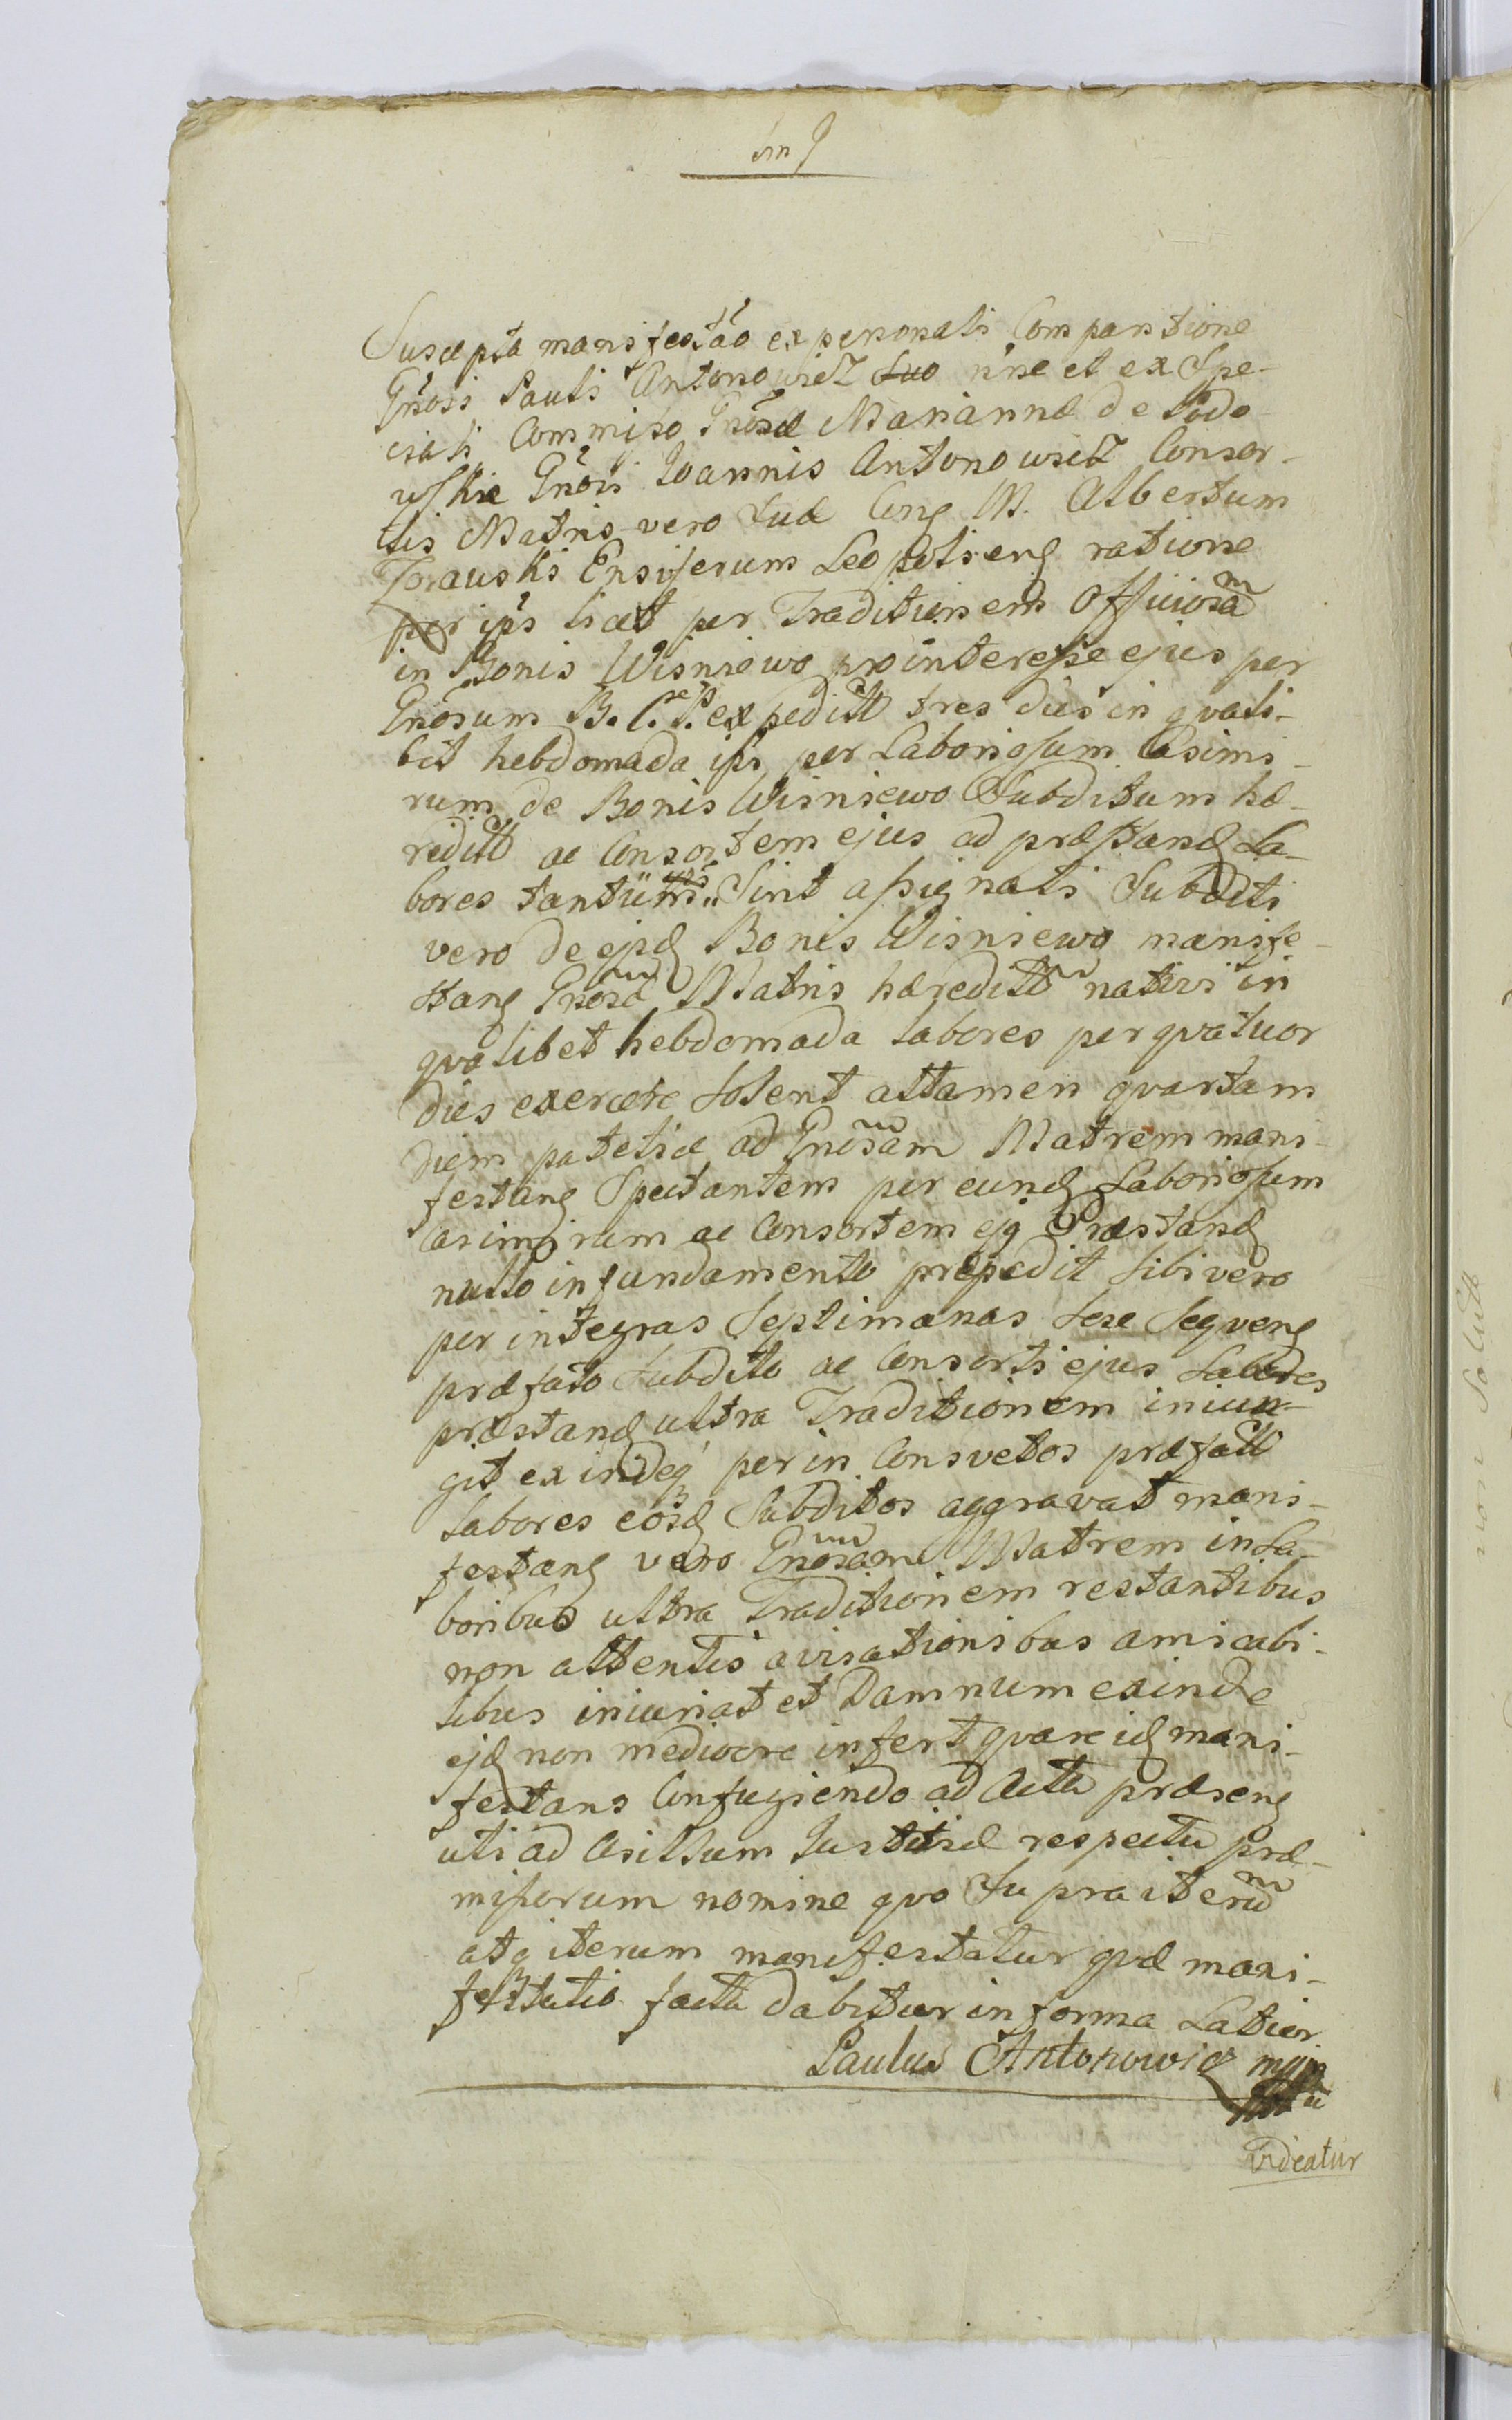 Suscepta manifestão ex personali Comparitione
Gñosi Pauli Antonowicz suo ñne et ex Spe-
ciali Commiso Gñosæ Mariannæ de Podo-
wskie Gñosi Joannis Antonowicz Consor-
tis Matris vero Suæ Cong M. Albertum
Ensiferum Leopoliens ratione
per ips licet per Traditionem Officiosam
in Bonis Wisniewo pro interesse ejus per
Gnosum B. C. P. expeditt tres dies in quali-
bit hebdomada ipsi per Laboriosum Casimi-
rum de Bonis Wisniewo Subditum hæ-
reditt ac Consortem ejus ad præstand La-
bores tantum Sint assignati Subditi
vero de ejsd Bonis Wisniewo manife-
stang Gnosæ Matris hæreditt nativi in
qvalibet hebdomada labores per qvatuor
dies exercere solent attamen qvartam
diem ad Gnosam Matrem mani-
festang Spectantem per eund Laboriosum
Casimirum ac Consortem ejq Præstand
nullo in fundamento præpedit sibi vero
per integras Septimanas sese seqveng
præfato Subdito ac Consorti ejus Labores
præstand ultra Traditionem iniun-
git exindeq per in Consvetos præfatt
Labores eosd Subditos aggravat mani-
festang vero Gnosam Matrem in La-
boribus ultra Traditionem restantibus
non attentis avisationibus amicabi-
libus iniuriat et Damnum exinde
ejd non mediocre infert qvare id mani-
festans Confugiendo ad Acta præseng
uti ad Asillum Justitiæ respectu præ-
missorum nomine qvo Supra iterum
atq iterum manifestatur qvæ mani-
festatio facta dabitur in forma Latior
Paulus Antonowicz mpp
videatur